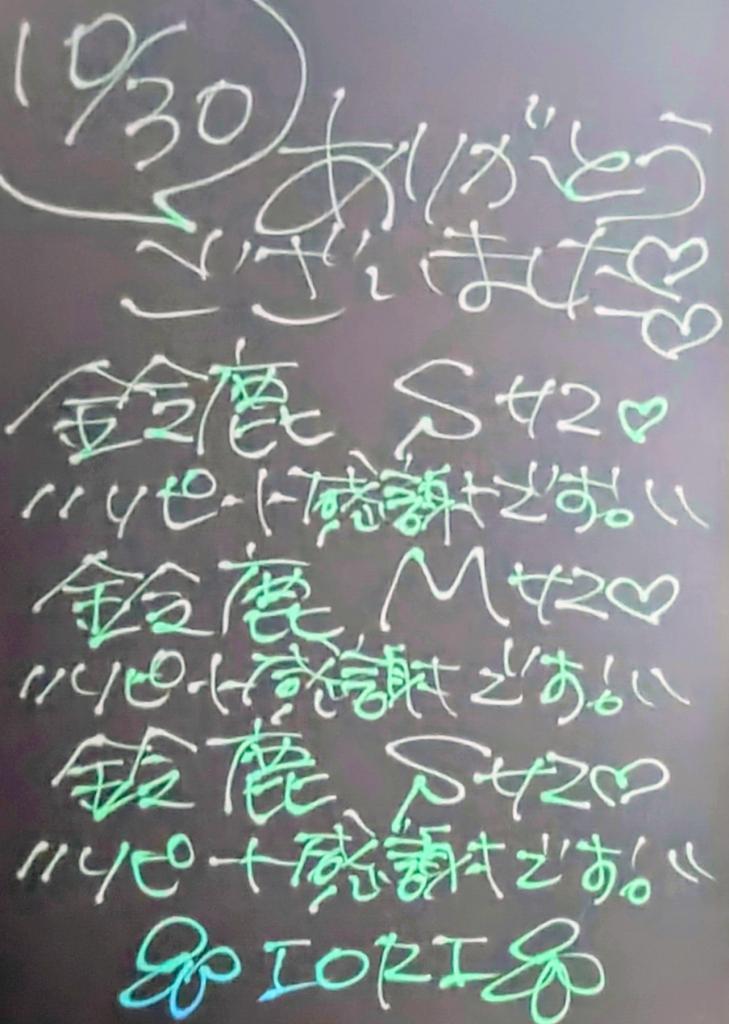 10/30
ありがとう
ございました♡♡
鈴鹿 Sサマ♡
〃リピート感謝です!〃
鈴鹿 Mサマ♡
〃リピート感謝です!〃
鈴鹿 Sサマ♡
〃リピート感謝です!〃
IORI